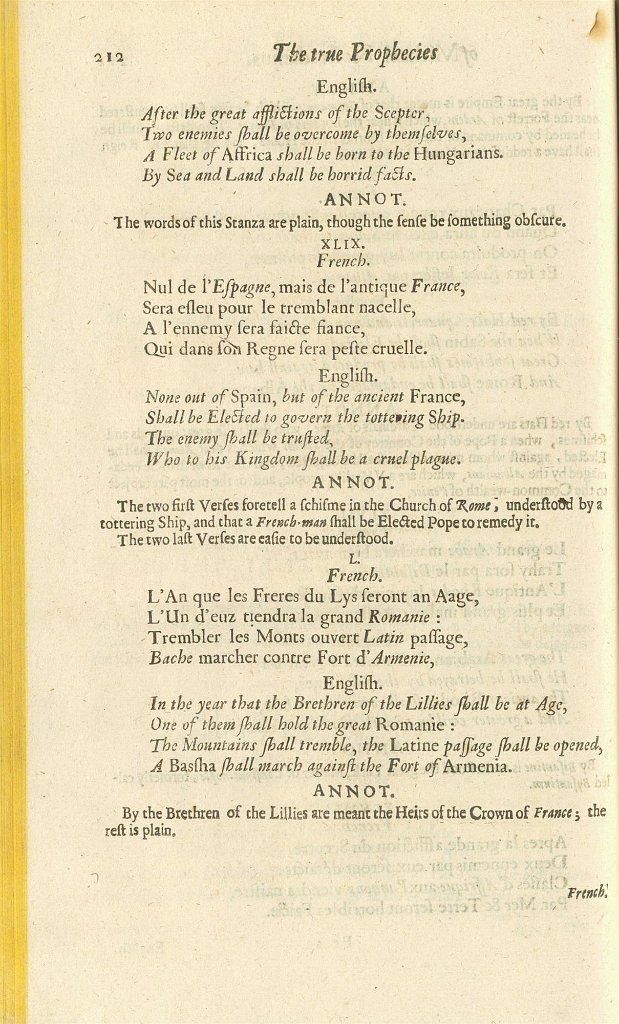 212 The true Prophecies
Engliſh.
After the great afflictions of the Scepter,
Two enemies ſhall be overcome by themſelves,
A Fleet of Affrica ſhall be born to the Hungarians.
By Sea and Land ſhall be horrid facts.
ANNOT.
The words of this Stanza are plain, though the ſenſe be ſomething obſcure.
XLIX.
French.
Nul de l'Eſpagne, mais de l'antique France,
Sera eſleu pour le tremblant nacelle,
A l'ennemy ſera faicte fiance,
Qui dans ſon Regne ſera peſte cruelle.
Engliſh.
None out of Spain, but of the ancient France,
Shall be Elected to govern the tottering Ship.
The enemy ſhall be truſted,
Who to his Kingdom ſhall be a cruel plague.
ANNOT.
The two firſt Verſes foretell a ſchiſme in the Church of Rome, underſtood by a
tottering Ship, and that a French-man ſhall be Elected Pope to remedy it.
The two laſt Verſes are eaſie to be underſtood.
L.
French.
L'An que les Freres du Lys ſeront an Aage,
L'Un d'euz tiendra la grand Romanie :
Trembler les Monts ouvert Latin paſſage,
Bache marcher contre Fort d'Armenie,
Engliſh.
In the year that the Brethren of the Lillies ſhall be at Age,
One of them ſhall hold the great Romanie :
The Mountains ſhall tremble, the Latine paſſage ſhall be opened,
A Bassha ſhall march againſt the Fort of Armenia.
ANNOT.
By the Brethren of the Lillies are meant the Heirs of the Crown of France; the
reſt is plain.
French.